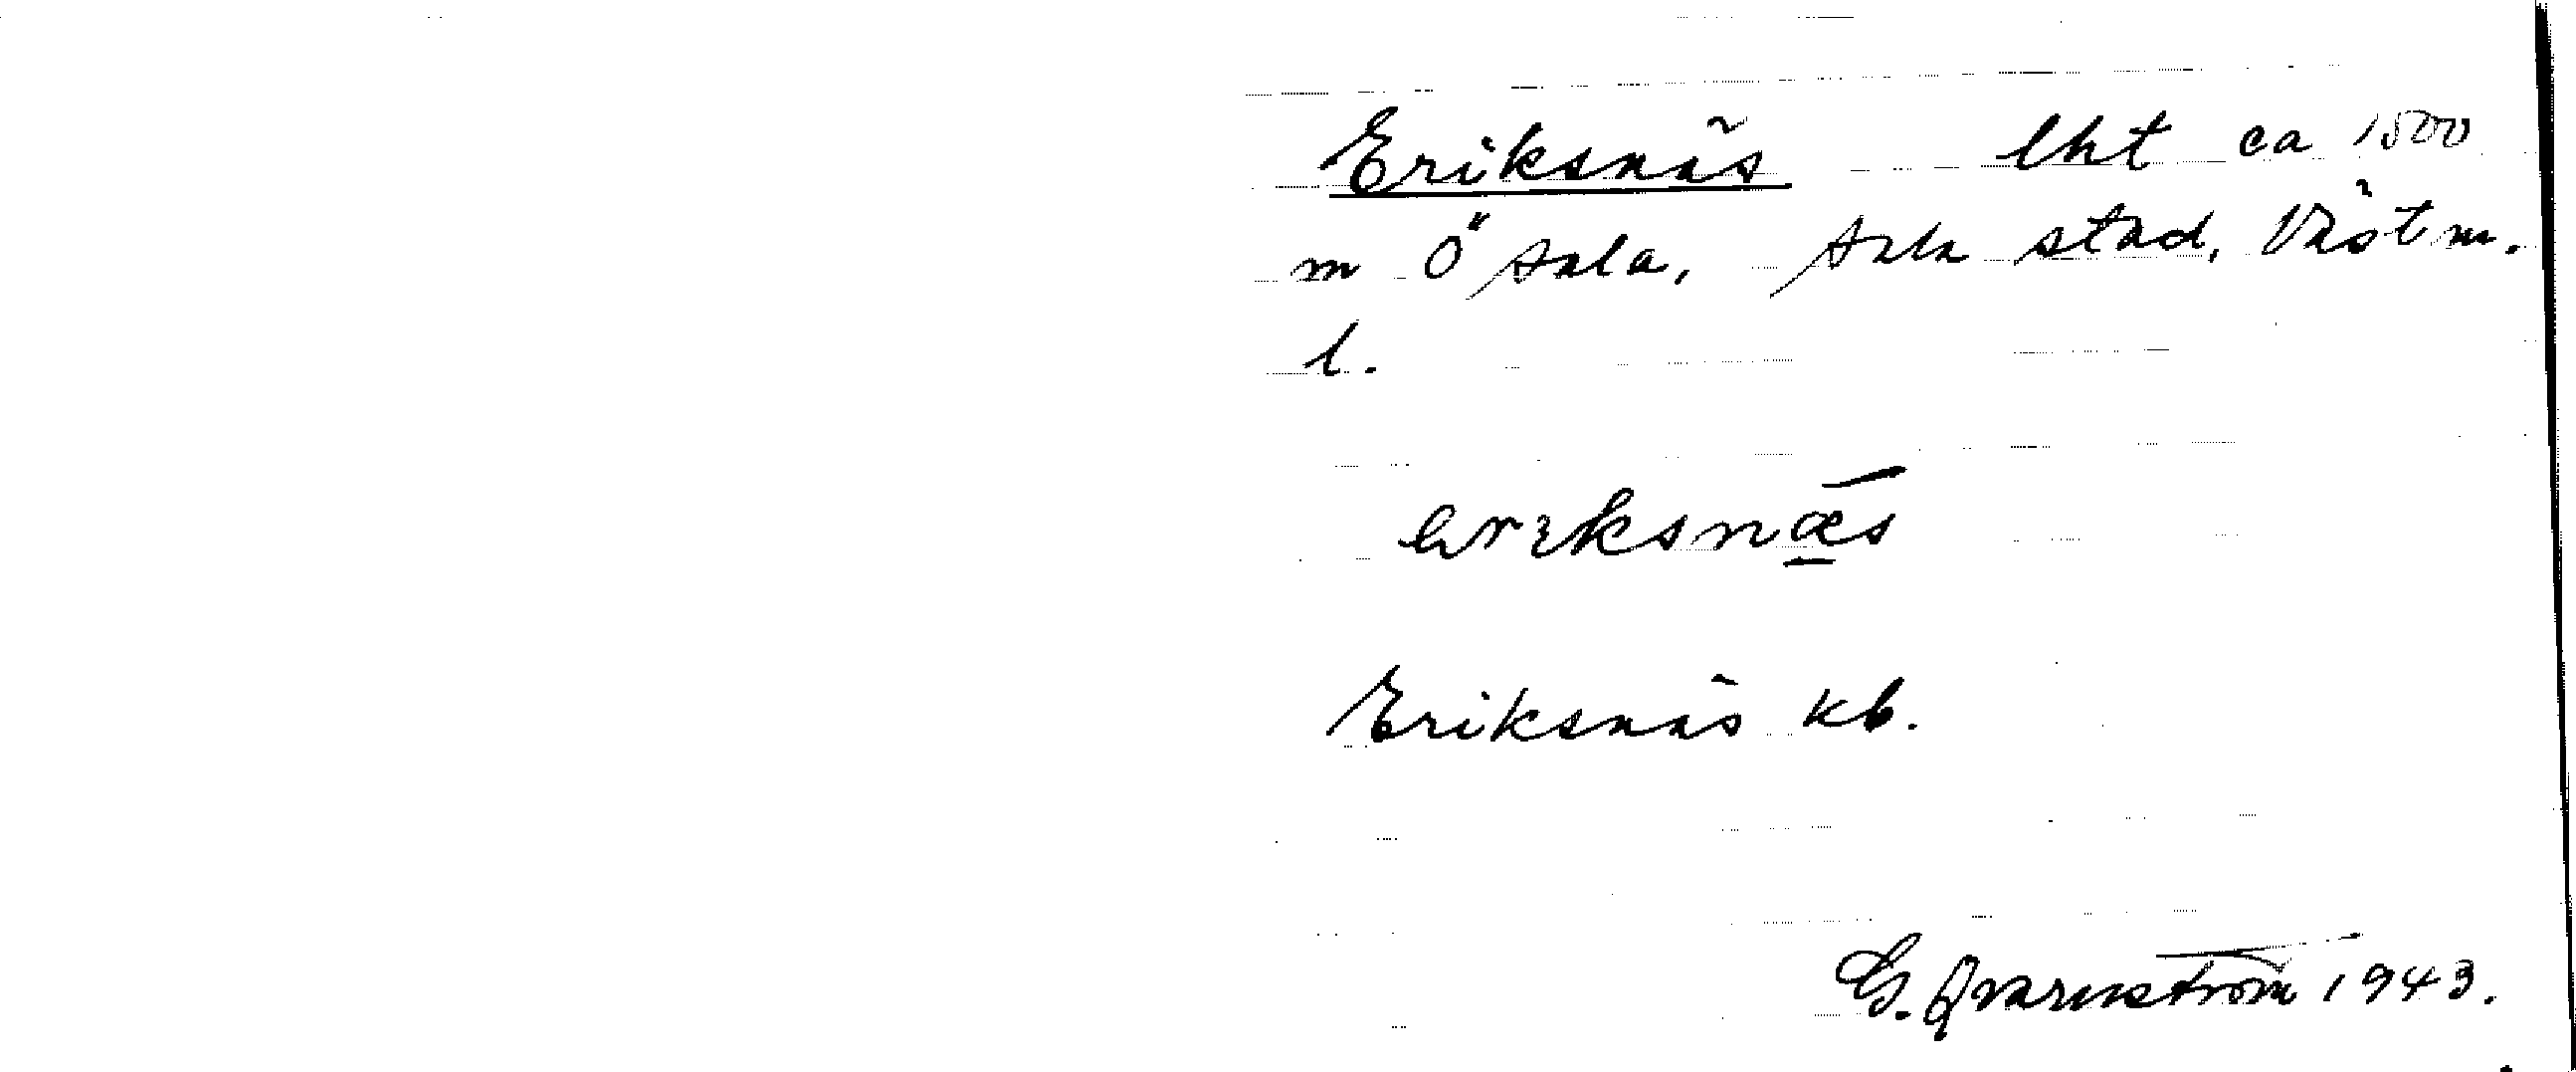 Eriksnäs lht ca 1500
m Ö Sala, Sala stad, Västm.
l.
eriksnæs
Eriksnäs kb.
G. Qvarnström 1943.